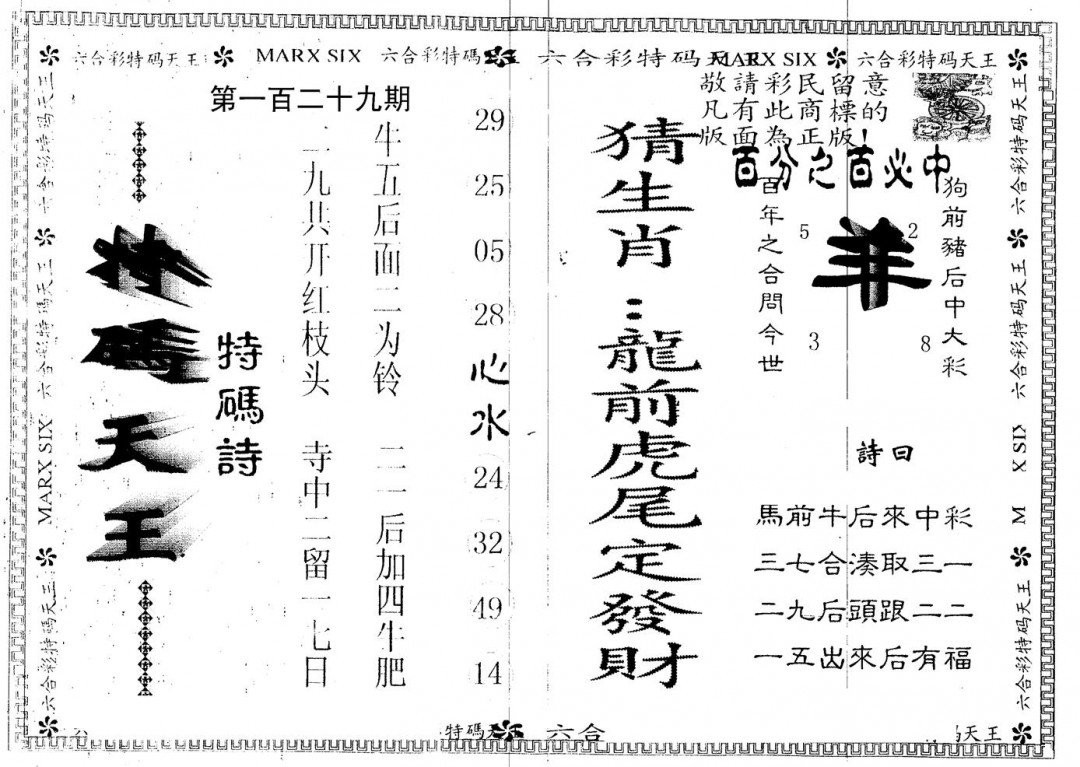 六合彩特码天王
MARX SIX
六合彩特碼
六合彩特码天王
MARX SIX
六合彩特码天王
第一百二十九期
敬請彩民留意
凡有此商標的
版面為正版！
特碼天王
特碼詩
二九共开红枝头
寺中二留一七日
牛五后面二为铃
二一后加四牛肥
29
25
05
28
心水
24
32
49
14
猜生肖：龍前虎尾定發財
百分之百必中
百年之合問今世
5
2
羊
3
8
狗前豬后中大彩
詩曰
馬前牛后來中彩
三七合湊取三一
二九后頭跟二二
一五出來后有福
六合彩特码天王
MARX SIX
六合彩特码天王
六合彩特码天王
六合彩特码天王
六合彩特码天王
X SIX
M
六合彩特码天王
特碼天
六合
天王